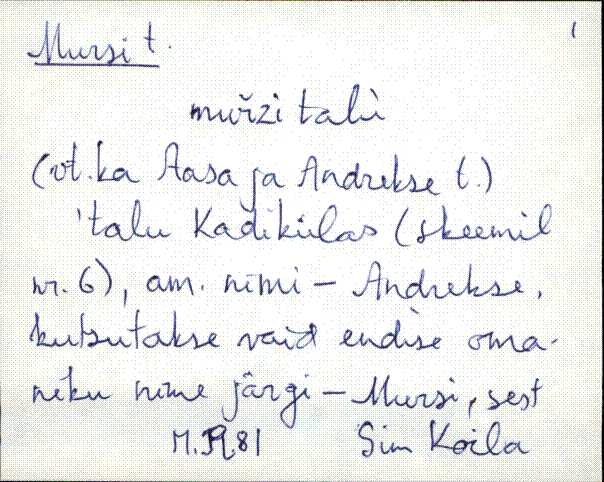 Mursi t. 1
muřzi talù
(vt. ka Aasa ja Andrekse t.)
'talu Kadikülas (skeemil
nr. 6), am. nimi - Andrekse,
kutsutakse vaid endise oma-
niku nime järgi - Mursi, sest
M.R.81 Sim Koila